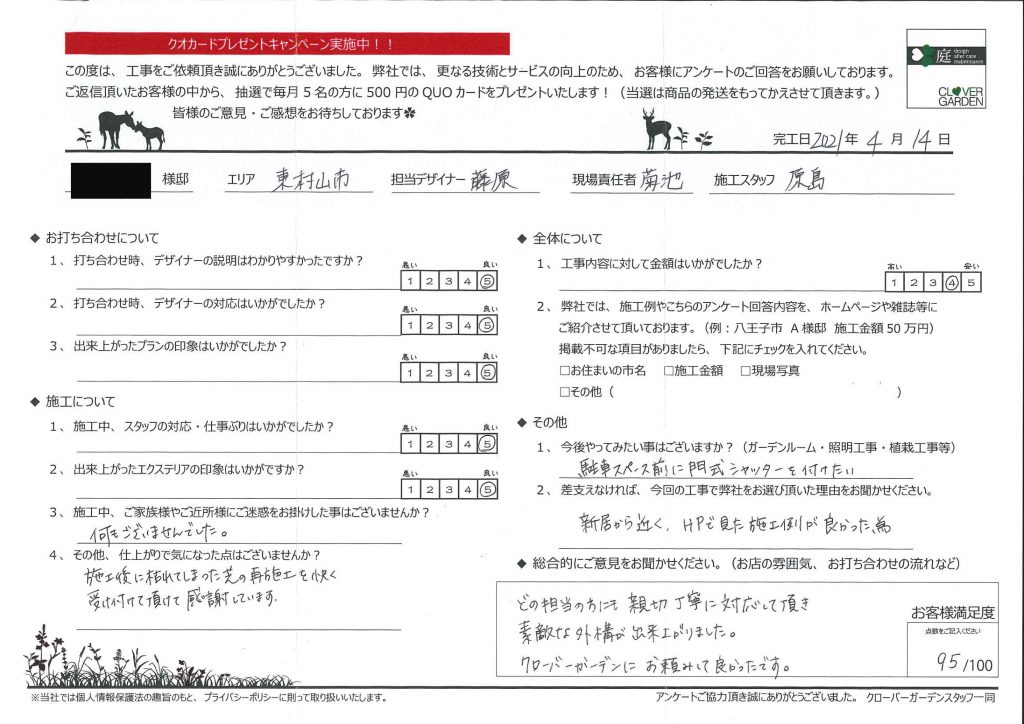 クオカードプレゼントキャンペーン実施中！！
この度は、工事をご依頼頂き誠にありがとうございました。弊社では、更なる技術とサービスの向上のため、お客様にアンケートのご回答をお願いしております。
ご返信頂いたお客様の中から、抽選で毎月5名の方に500円のQUOカードをプレゼントいたします！（当選は商品の発送をもってかえさせて頂きます。）
皆様のご意見・ご感想をお待ちしております
庭 design after care maintenance
CLOVER GARDEN
完工日2021年 4月 14日
様邸 エリア 東村山市 担当デザイナー 藤原 現場責任者 菊池 施工スタッフ 原島
◆ お打ち合わせについて
1、打ち合わせ時、デザイナーの説明はわかりやすかったですか？
悪い 良い
1 2 3 4 5
2、打ち合わせ時、デザイナーの対応はいかがでしたか？
悪い 良い
1 2 3 4 5
3、出来上がったプランの印象はいかがでしたか？
悪い 良い
1 2 3 4 5
◆ 施工について
1、施工中、スタッフの対応・仕事ぶりはいかがでしたか？
悪い 良い
1 2 3 4 5
2、出来上がったエクステリアの印象はいかがですか？
悪い 良い
1 2 3 4 5
3、施工中、ご家族様やご近所様にご迷惑をお掛けした事はございませんか？
何もございませんでした。
4、その他、仕上がりで気になった点はございませんか？
施工後に枯れてしまった芝の再施工を快く
受け付けて頂けて感謝しています。
◆ 全体について
1、工事内容に対して金額はいかがでしたか？
高い 安い
1 2 3 4 5
2、弊社では、施工例やこちらのアンケート回答内容を、ホームページや雑誌等に
ご紹介させて頂いております。（例：八王子市 A様邸 施工金額50万円）
掲載不可な項目がありましたら、下記にチェックを入れてください。
□お住まいの市名 □施工金額 □現場写真
□その他（ ）
◆ その他
1、今後やってみたい事はございますか？（ガーデンルーム・照明工事・植栽工事等）
駐車スペース前に門式シャッターを付けたい
2、差支えなければ、今回の工事で弊社をお選び頂いた理由をお聞かせください。
新居から近く、HPで見た施工例が良かった為
◆ 総合的にご意見をお聞かせください。（お店の雰囲気、お打ち合わせの流れなど）
どの担当の方にも親切丁寧に対応して頂き
素敵な外構が出来上がりました。
クローバーガーデンにお頼みして良かったです。
お客様満足度
点数をご記入ください
95/100
※当社では個人情報保護法の趣旨のもと、プライバシーポリシーに則って取り扱いいたします。
アンケートご協力頂き誠にありがとうございました。クローバーガーデンスタッフ一同